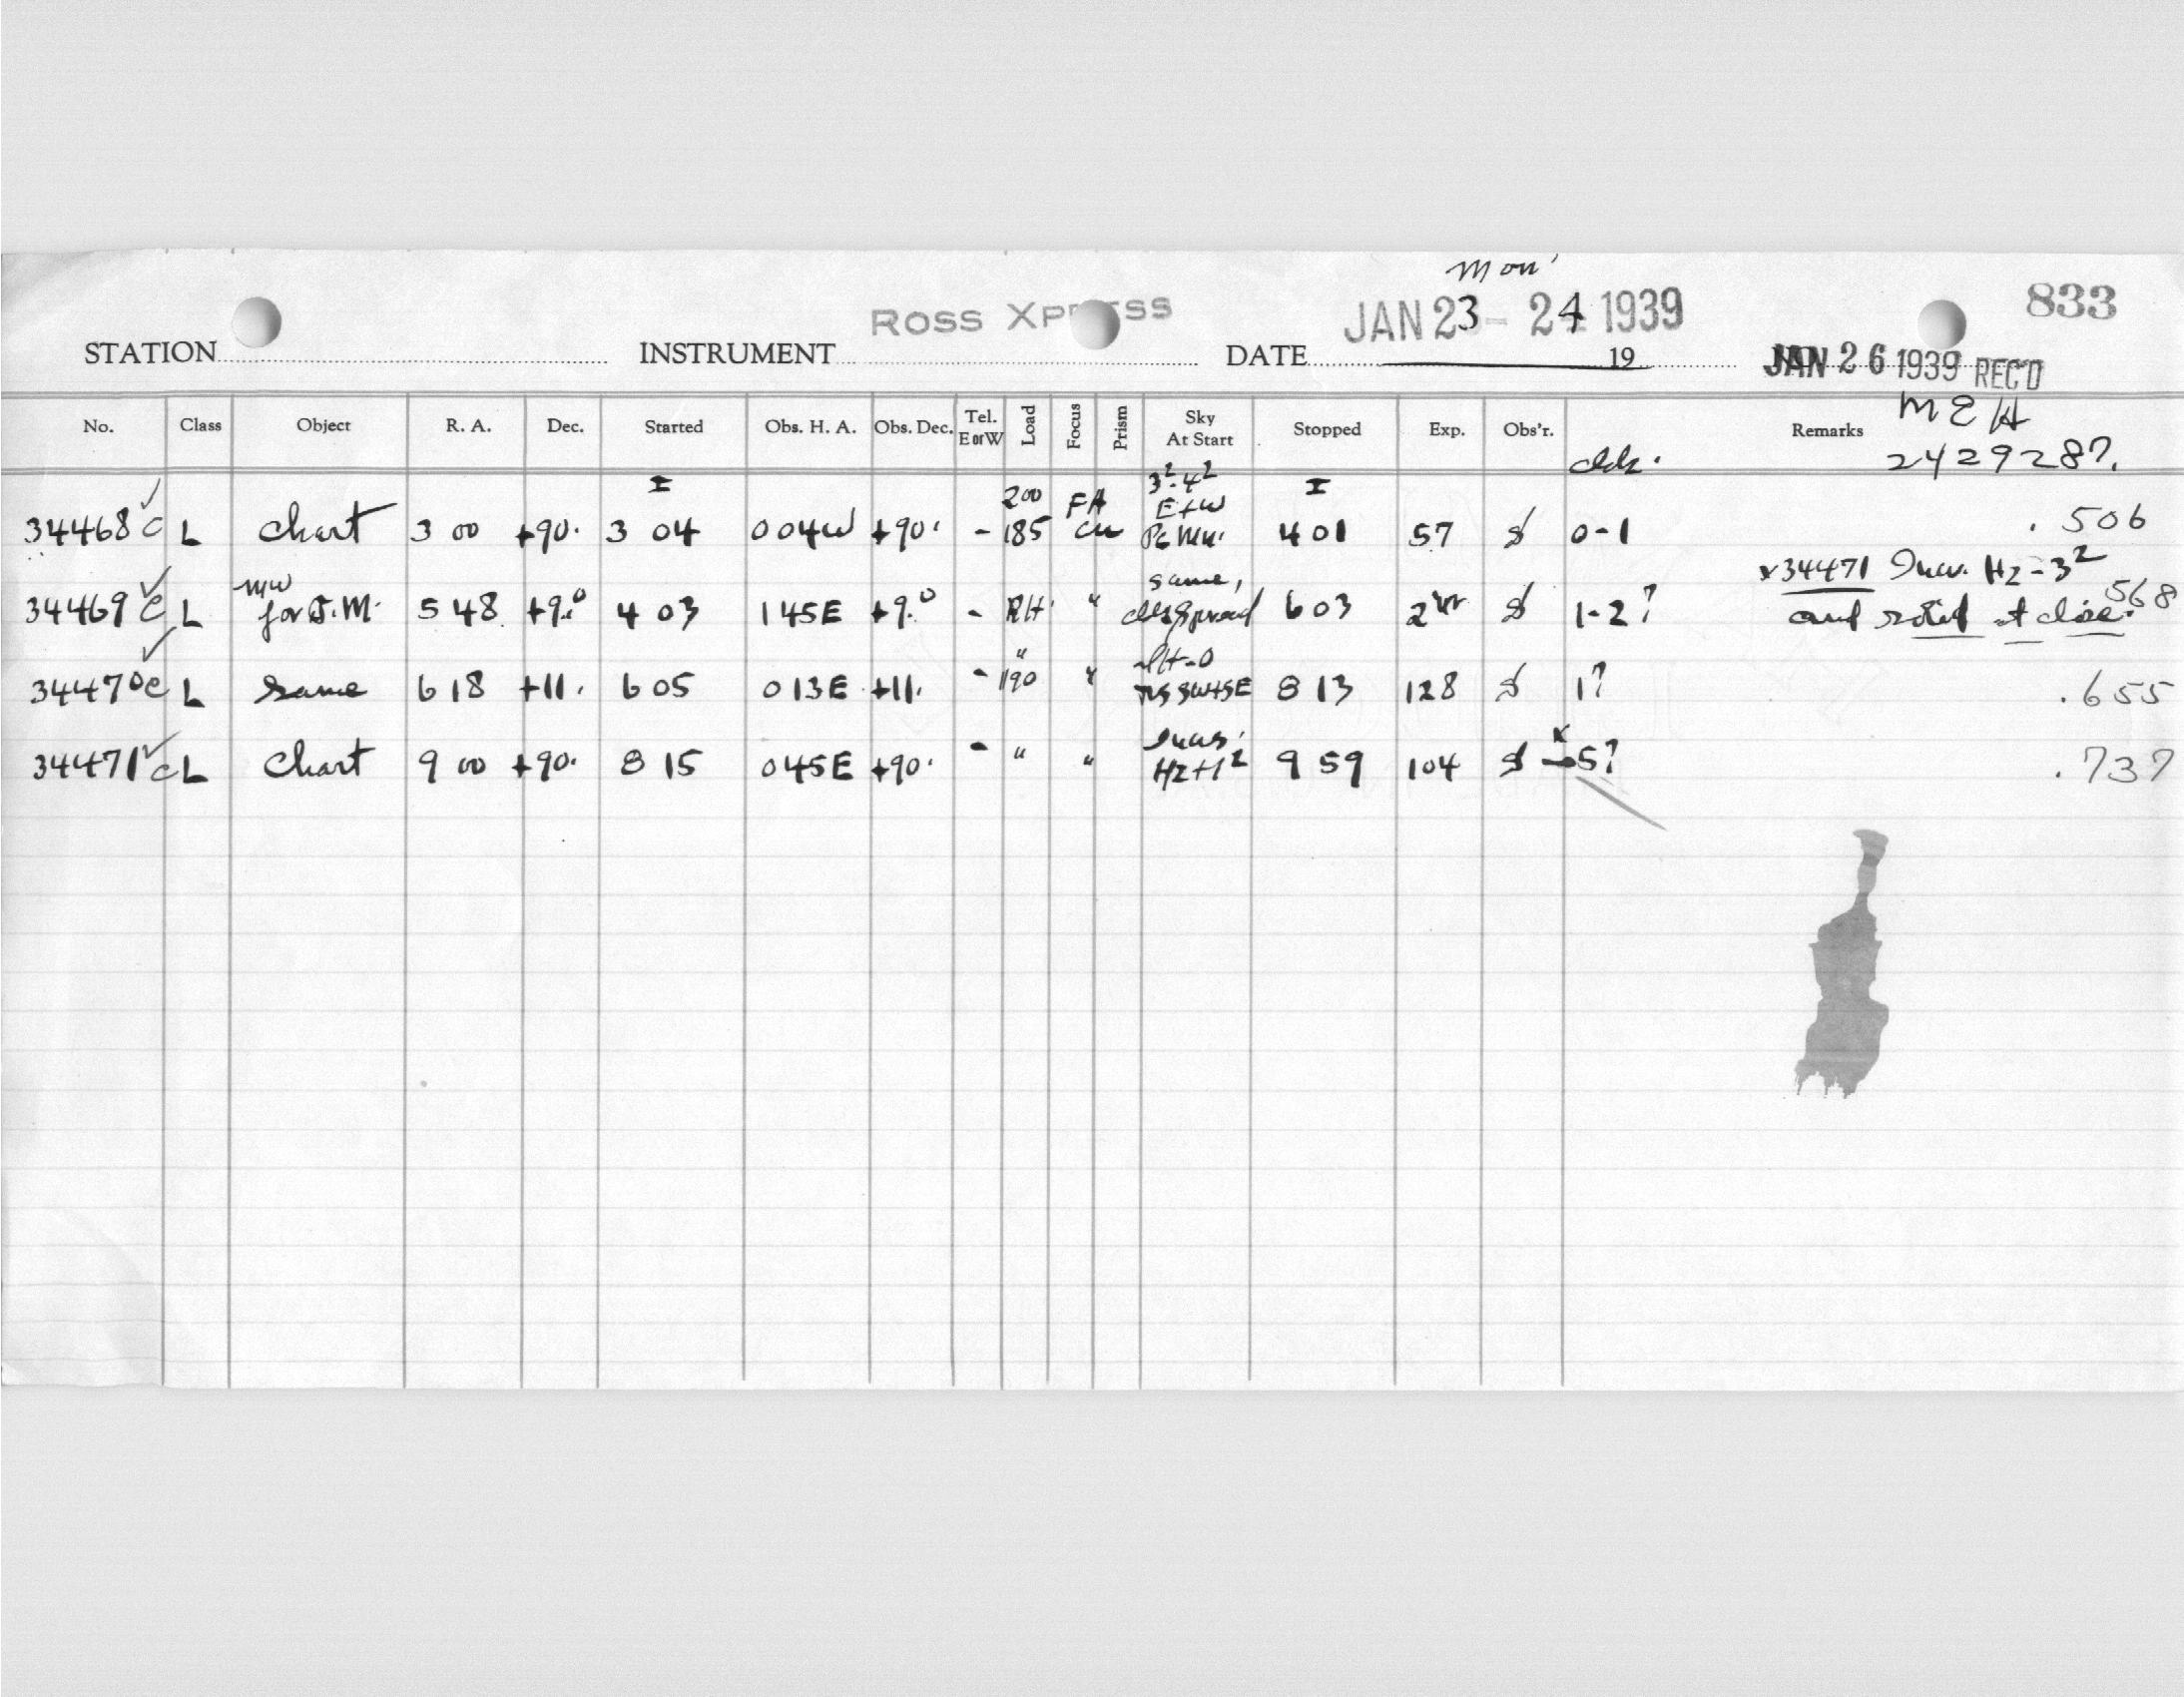 Mon
ROSS XPRESS JAN 23-24 1939 833
STATION INSTRUMENT DATE 19 JAN 26 1939 REC'D
No. Class Object R. A. Dec. Started Obs. H. A. Obs. Dec. Tel. E or W Load Focus Prism Sky At Start Stopped Exp. Obs'r. Remarks MEH
2429287.
I 200 FA 3²-4² E+W I
34468 c L Chart 3 00 +90. 3 04 004W +90. - 185 4 01 57 0-1 .506
MW same, x34471 Hz-3²
34469 c L for J.M. 5 48 +9.0 4 03 145E +9.0 - RH " 6 03 2 hr 1-2? and at close. .568
"
34470 c L same 6 18 +11. 6 05 013E +11. - 190 " SW+SE 8 13 128 1? .655
x
34471 c L Chart 9 00 +90. 8 15 045E +90. - " " Hz+1² 9 59 104 5? .737